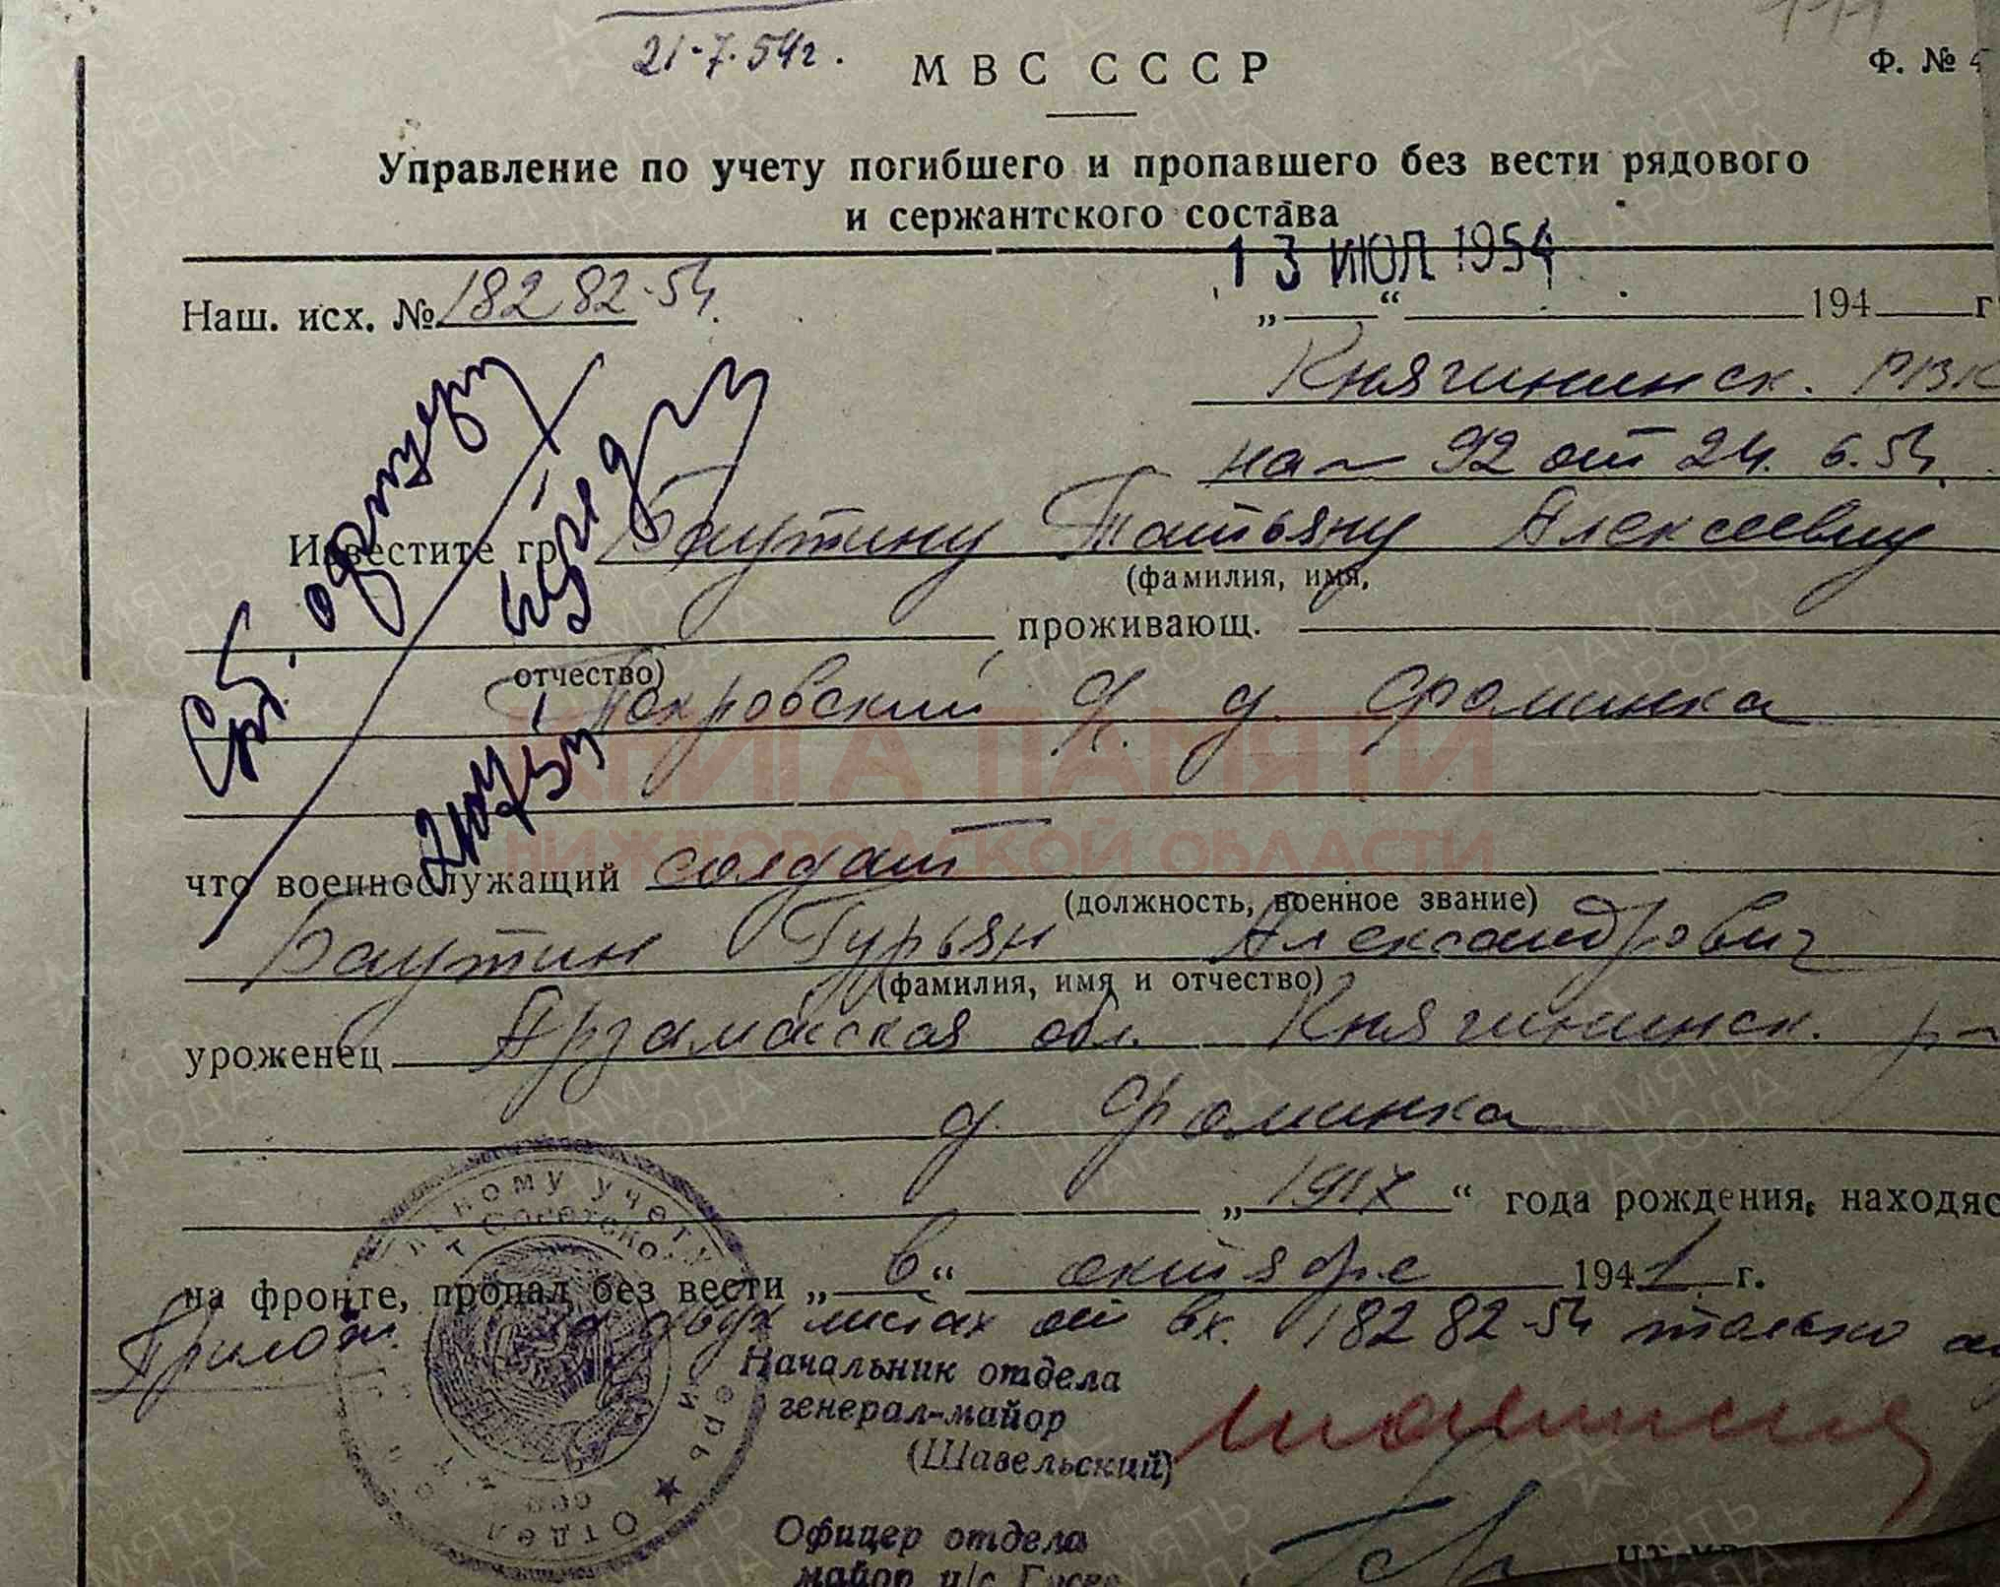 21-7.54г.
МВС СССР
Ф. №
Управление по учету погибшего и пропавшего без вести рядового
и сержантского состава
13 ИЮЛ 1954
Наш. исх. № 18282-54.
„ “ 194 г
Княгининск. РВК
на 92 от 24.6.54.
Известите гр. Баутину Татьяну Алексеевну
(фамилия, имя,
проживающ.
отчество)
Покровский с/с. д. Фоминка
что военнослужащий солдат
(должность, военное звание)
Баутин Гурьян Александрович
(фамилия, имя и отчество)
уроженец Арзамасская обл. Княгининск. р-
д. Фоминка
„1917“ года рождения, находяс
на фронте, пропал без вести „в“ октябре 1941 г.
Прилож. на двух листах от вх. 18282-54 только
Начальник отдела
генерал-майор
(Шавельский)
Офицер отдела
майор и/с
Ст. офицеру
КНИГА ПАМЯТИ
НИЖЕГОРОДСКОЙ ОБЛАСТИ
ПАМЯТЬ
НАРОДА